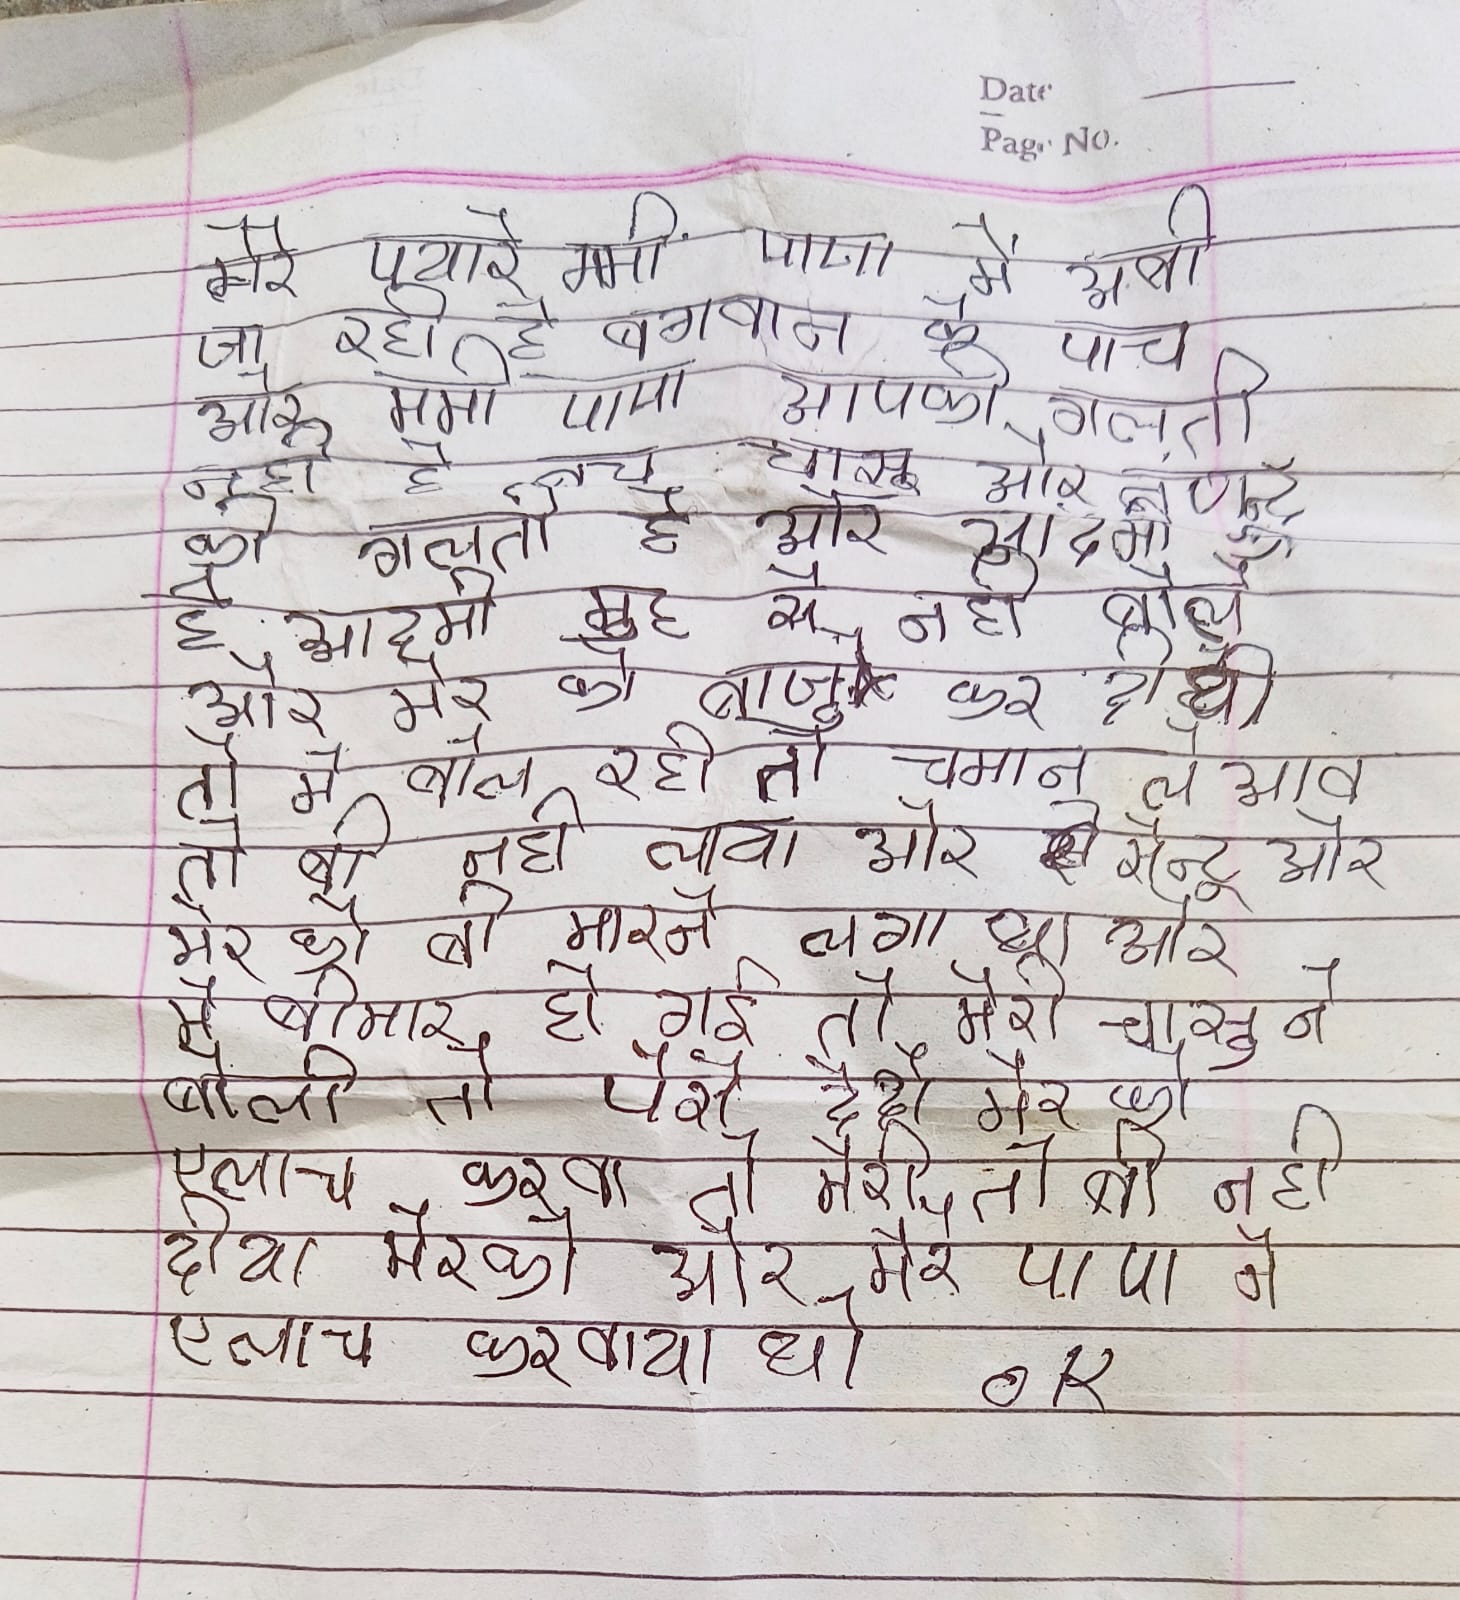 Date
Page No.
मेरे पयारे ममी पापा मै अबी
जा रही है बगवान के पाच
और ममी पापा आपकी गलती
नही है चाचु और
की गलती है और आदमी की
है आदमी मुह से नही बोले
और मेर को बाजु कर दी थी
तो मै बोल रही तो चमान ले आव
तो बी नही लावा और सेन्टू और
मेर को बी मारने लगा था और
मै बीमार हो गई तो मेरी चासु ने
बोली तो पेसे देदो मेर को
एलाच करवा तो मेरी तो बी नही
दीया मेरको और मेरे पापा ने
एलाच करवाया थो OK